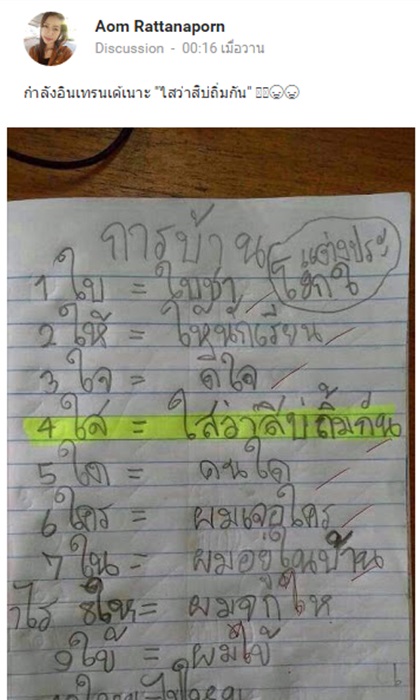 Aom Rattanaporn
Discussion - 00:16 เมื่อวาน
กำลังอินเทรนเด้เนาะ "ไสว่าสิบ่ถิ่มกัน"
การบ้าน แต่งประ
โยคใ
1 ใบ = ใบชา
2 ให้ = ให้นักเรียน
3 ใจ = ดีใจ
4 ใส = ใสว่าสิบ่ถิ้มกัน
5 ใด = คนใด
6 ใคร = ผมเจอใคร
7 ใน = ผมอยู่ในบ้าน
8 ให = ผมจุกให
9 ใบ้ = ผมใบ้